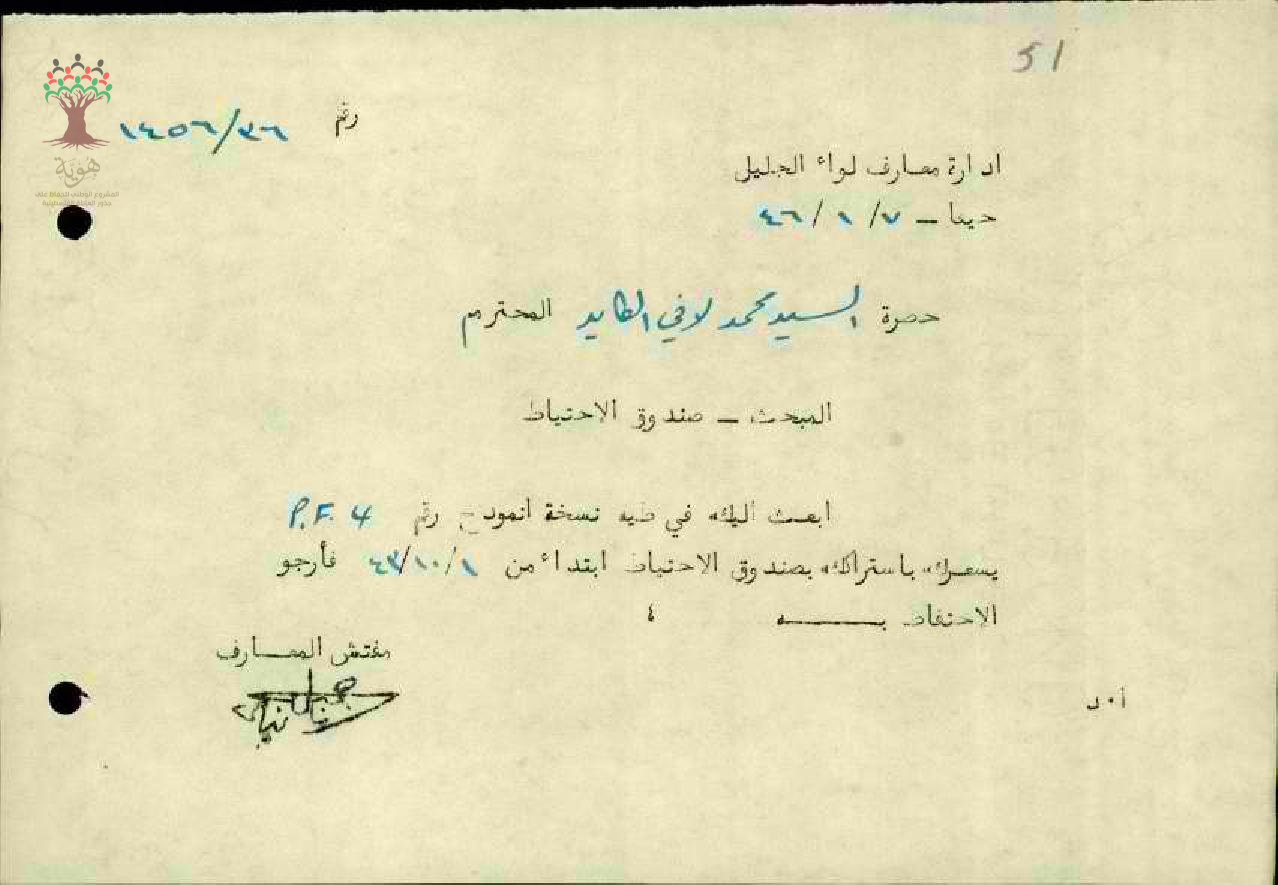 51
رقم ١٤٥٦/٣٦
هُوِيَّة
المشروع الوطني للحفاظ على
جذور العائلة الفلسطينية
ادارة معارف لواء الجليل
حيفا – ٧/ ١ /٤٦
حضرة السيد محمد لافي الكايد المحترم
المبحث – صندوق الاحتياط
ابعث اليك في طيه نسخة انموذج رقم P.F. 4
يشعرك باشتراكك بصندوق الاحتياط ابتداء من ٤٣/١٠/١ فأرجو
الاحتفاظ بـــــه ٤
مفتش المعــارف
أ٠د